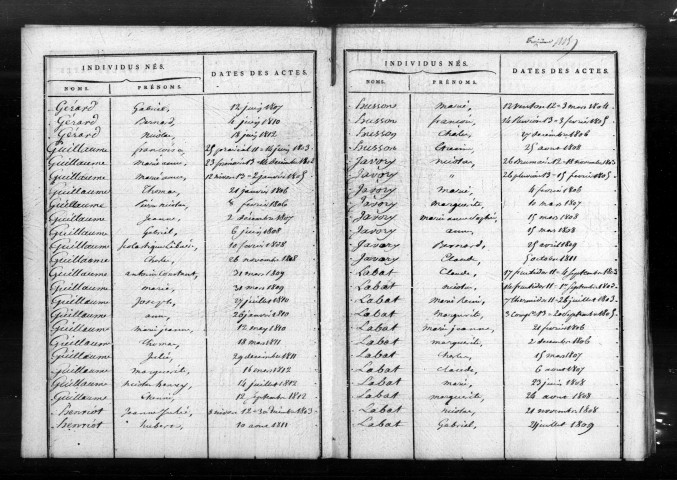 INDIVIDUS NÉS.
DATES DES ACTES.
NOMS. PRÉNOMS.
Gérard Gabriel, 12 juin 1807
Gérard Bernard, 4 juin 1810
Gérard Nicolas, 13 juin 1812
Guillaume françoise, 25 prairial 11 = 14 juin 1803
Guillaume marie anne,
Guillaume marie anne, 12 nivose 13 = 2 janvier 1805
Guillaume Thomas, 21 janvier 1806
Guillaume pierre nicolas, 8 fevrier 1806
Guillaume Jeanne, 2 décembre 1807
Guillaume Gabriel, 6 juin 1808
Guillaume 10 fevrier 1808
Guillaume Charles, 26 novembre 1808
Guillaume antoine Constant, 31 mars 1809
Guillaume marie, 31 mars 1809
Guillaume Joseph, 27 juillet 1810
Guillaume anne, 26 janvier 1810
Guillaume marie jeanne, 12 may 1810
Guillaume Thomas, 18 mars 1811
Guillaume Julie, 29 decembre 1811
Guillaume marguerite, 16 mars 1812
Guillaume nicolas 14 juillet 1812
Guillaume 12 septembre 1812
henriot Jeanne Julie, 1803
henriot hubert, 10 aout 1811
INDIVIDUS NÉS.
DATES DES ACTES.
NOMS. PRÉNOMS.
Husson marie, 12 ventose 12 = 3 mars 1804
Husson françois, 1805
Husson Charles, 27 decembre 1806
Husson 25 aout 1808
Javory nicolas, 1803
Javory " 26 pluviose 13 = 15 fevrier 1805
Javory marie, 4 fevrier 1806
Javory marguerite, 10 mars 1807
Javory marie anne Sophie, 15 mars 1808
Javory anne, 15 mars 1808
Javory Bernard, 25 avril 1809
Javory Claude, 5 octobre 1811
Labat Claude, 17 fructidor 11 = 4 septembre 1803
Labat nicolas, 14 fructidor 11 = 1er septembre 1803
Labat marie 7 thermidor 11 = 26 juillet 1803
Labat marguerite, 1805
Labat marie jeanne, 21 fevrier 1806
Labat marguerite, 2 decembre 1806
Labat Charles, 15 mars 1807
Labat Claude, 6 aout 1807
Labat marie, 23 juin 1808
Labat marguerite, 26 aout 1808
Labat nicolas, 21 novembre 1808
Labat Gabriel, 24 juillet 1809